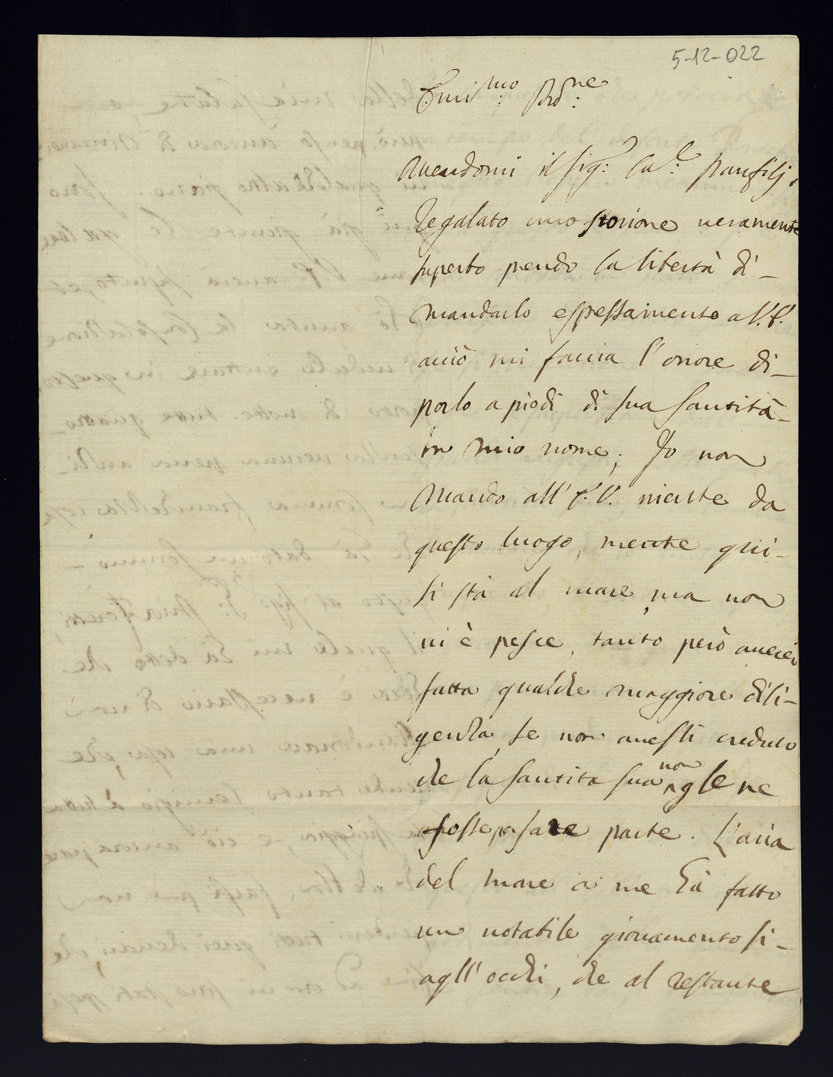 5-12-022
Em:mo Pad:ne
Avendomi il Sig:r Ca:l Panfilj
regalato uno storione veramente
superbo prendo la libertà di
mandarlo espressamente a V.E.
acciò mi faccia l'onore di
porlo a piedi di sua Santità
in mio nome; Io non
mando all'E.V. niente da
questo luogo, mentre qui
si stà al mare, ma non
vi è pesce, tanto però averei
fatta qualche maggiore dili-
genza, se non avessi creduto
che la Santità sua non gle ne
fosse per fare parte. L'aria
del mare a me hà fatto
un notabile giovamento si
agl'occhi, che al restante